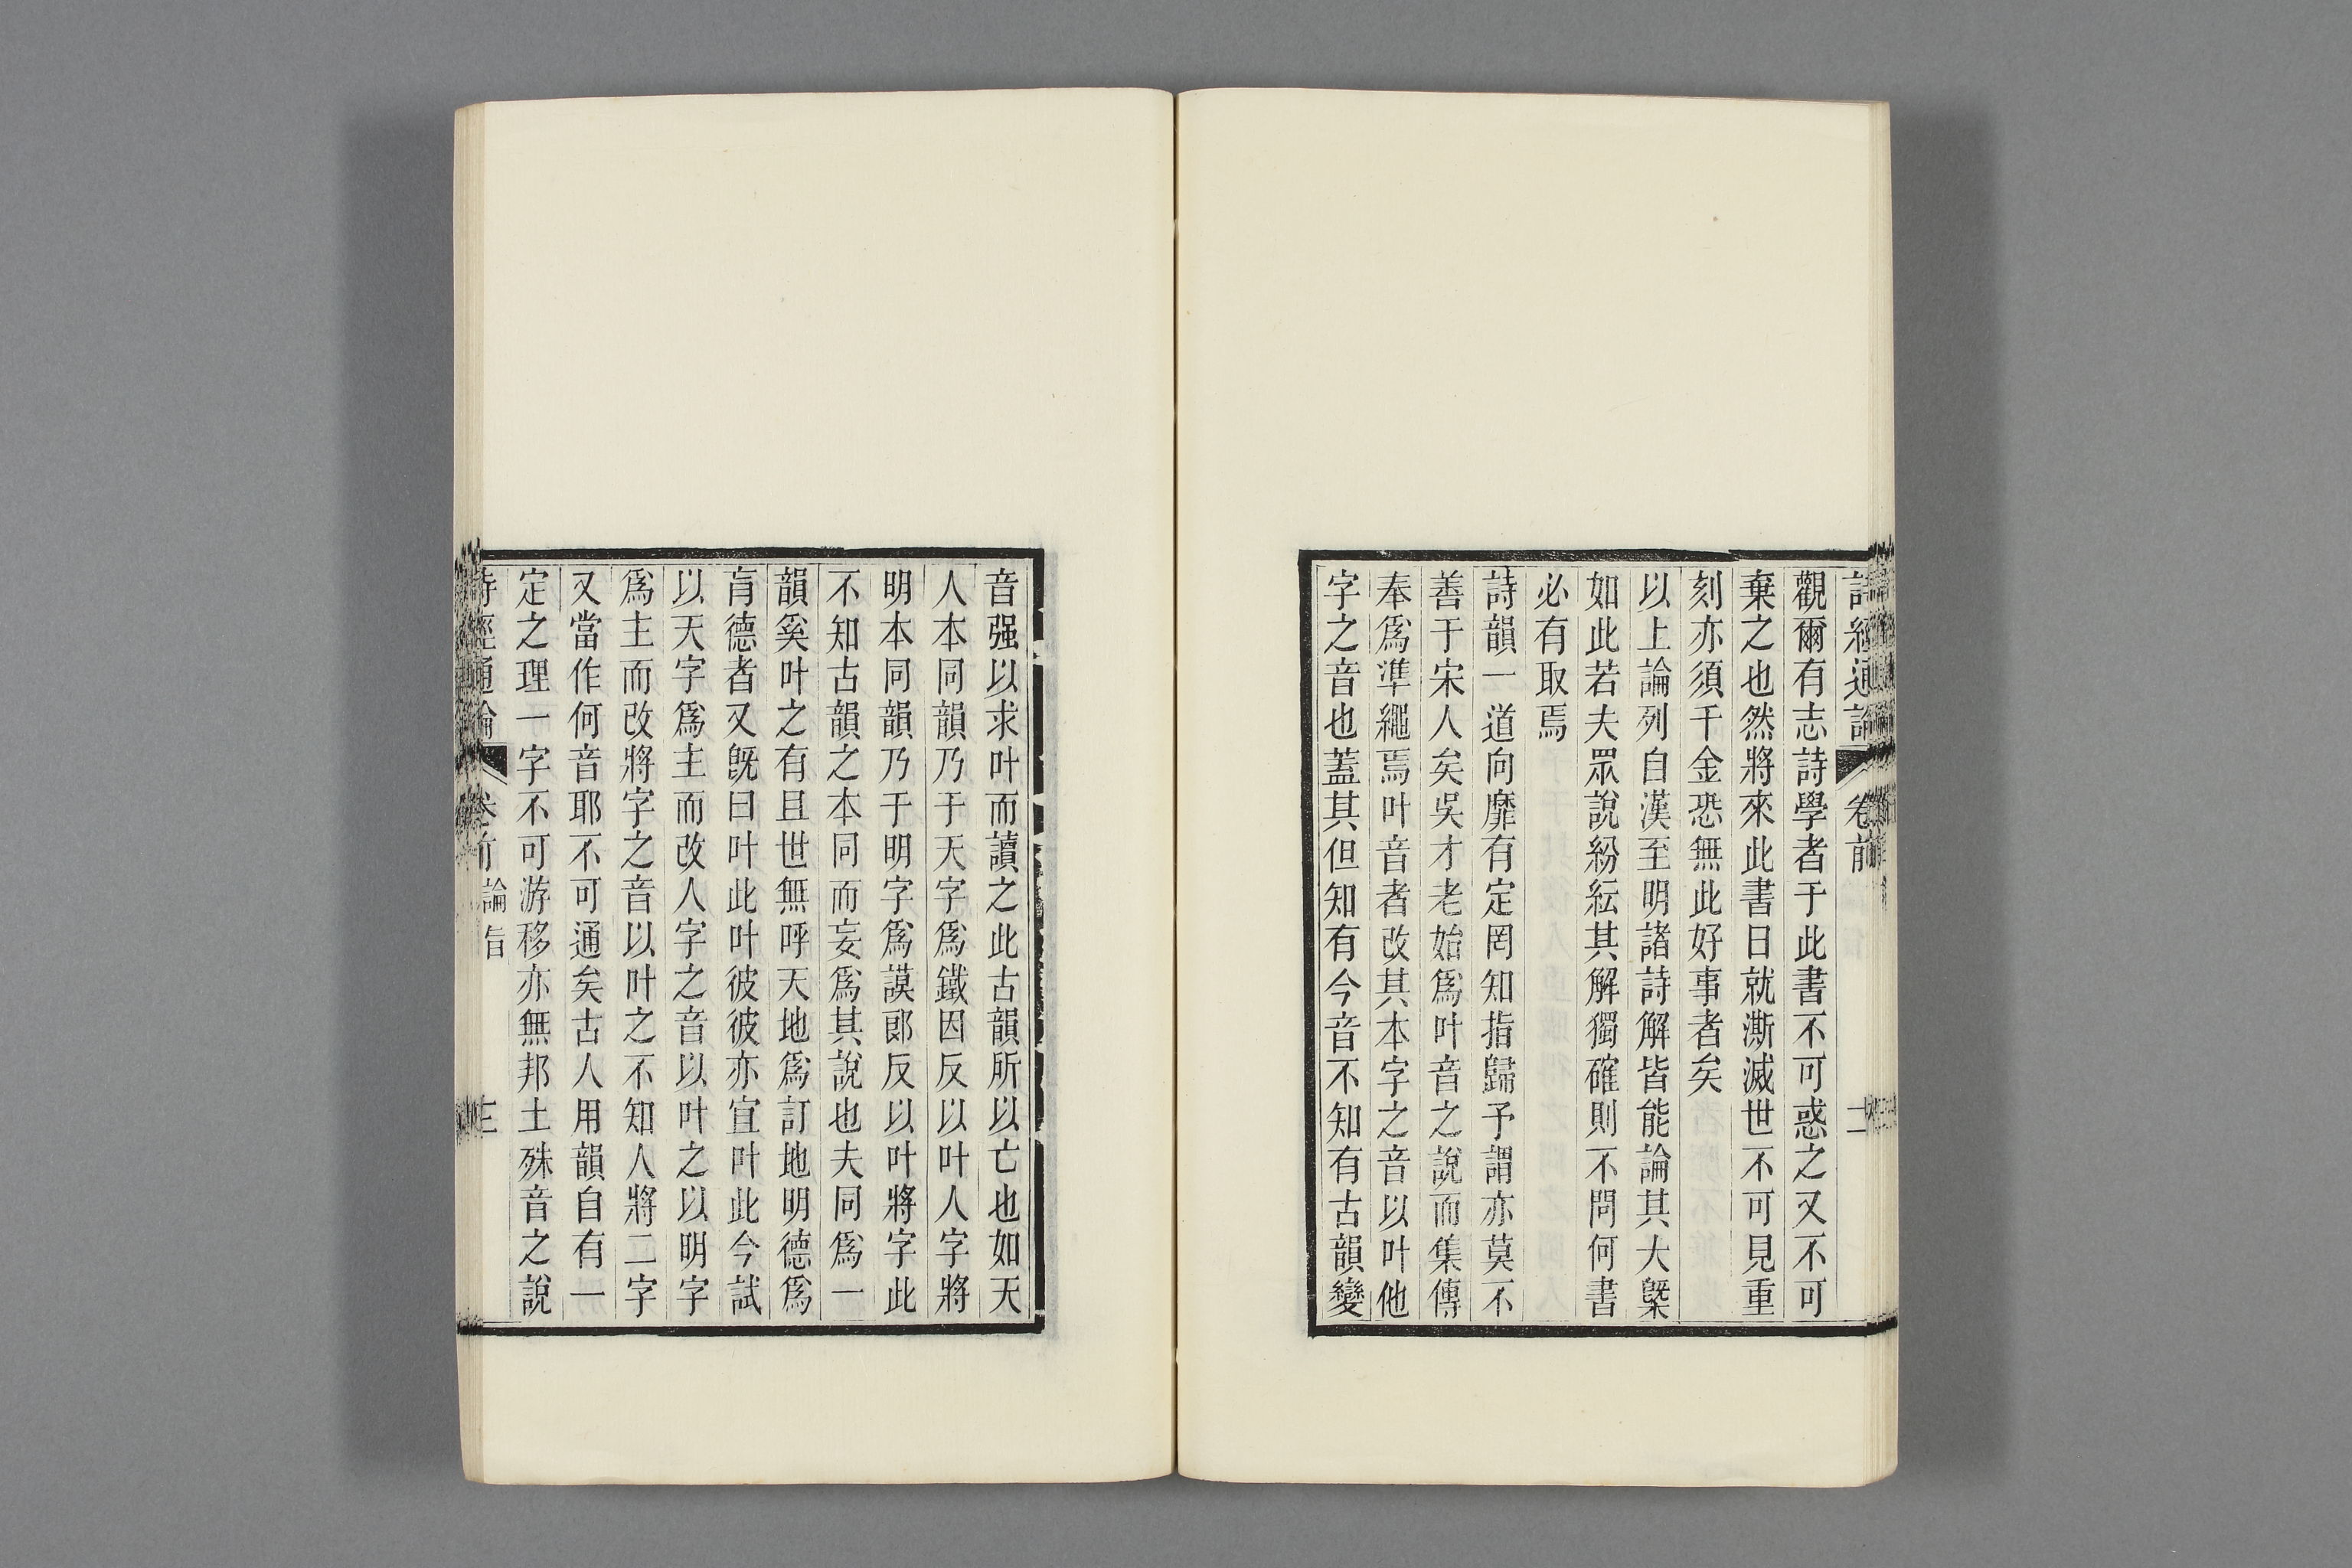 詩經通論 卷前 二
觀爾有志詩學者于此書不可惑之又不可
棄之也然將來此書日就澌滅世不可見重
刻亦須千金恐無此好事者矣
以上論列自漢至明諸詩解皆能論其大槩
如此若夫眾說紛紜其解獨確則不問何書
必有取焉
詩韻一道向靡有定罔知指歸予謂亦莫不
善于宋人矣吳才老始爲叶音之說而集傳
奉爲準繩焉叶音者改其本字之音以叶他
字之音也蓋其但知有今音不知有古韻變
音强以求叶而讀之此古韻所以亡也如天
人本同韻乃于天字爲鐵因反以叶人字將
明本同韻乃于明字爲謨郎反以叶將字此
不知古韻之本同而妄爲其說也夫同爲一
韻奚叶之有且世無呼天地爲訂地明德爲
肓德者又旣曰叶此叶彼彼亦宜叶此今試
以天字爲主而改人字之音以叶之以明字
爲主而改將字之音以叶之不知人將二字
又當作何音耶不可通矣古人用韻自有一
定之理一字不可游移亦無邦土殊音之說
詩經通論 卷前 論旨 三